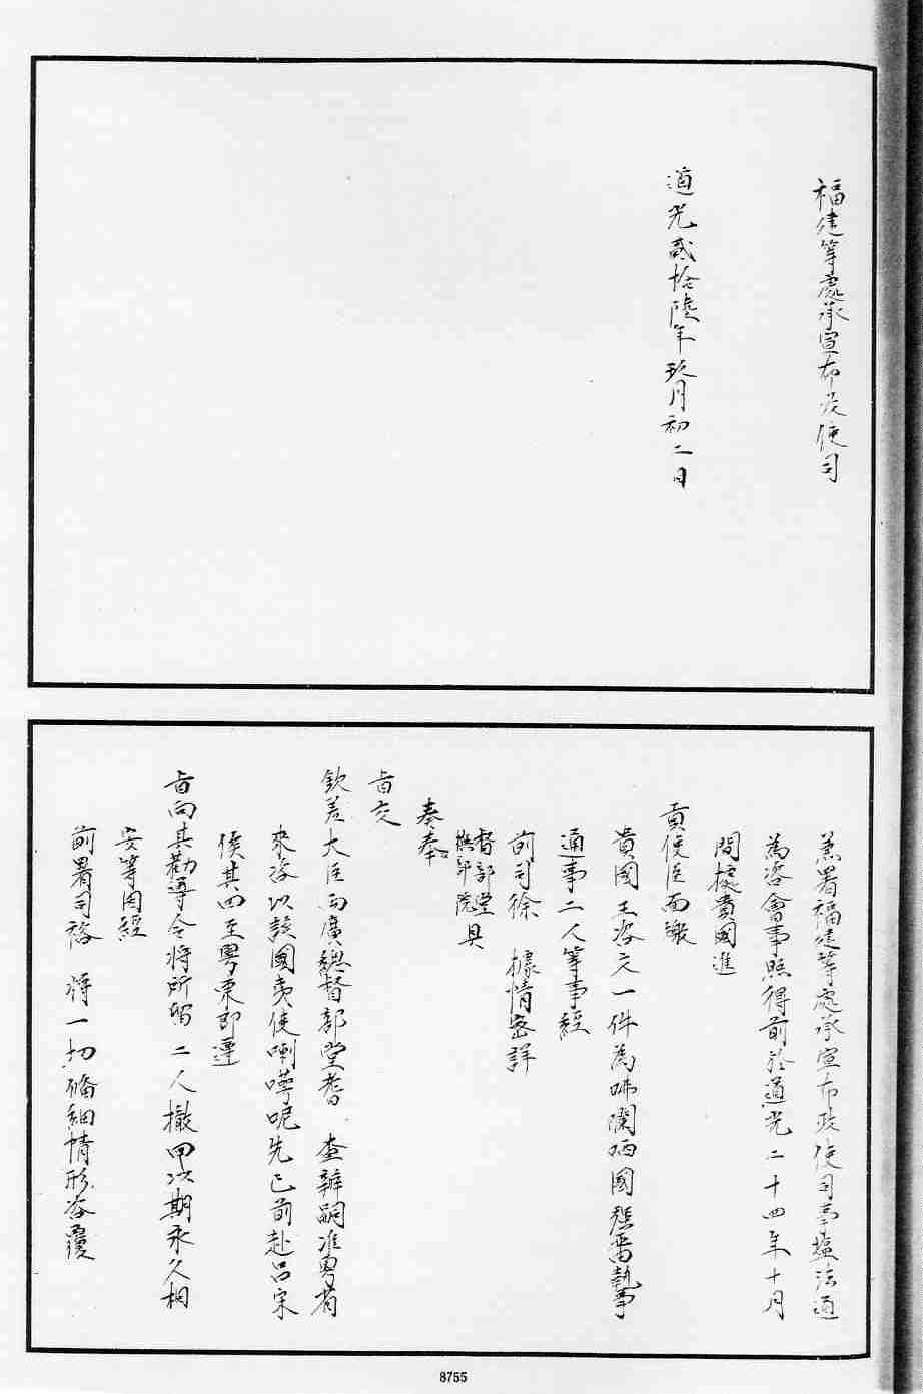 福建等處承宣布政使司
道光貳拾陸年玖月初二日
兼署福建等處承宣布政使司事塩法道
為咨會事照得前於道光二十四年十月
間據貴國進
貢使臣面繳
貴國王咨文一件為咈囒哂國強留執事
通事二人等事經
前司徐 據情密詳
督部堂
撫部院 具
奏奉
旨交
欽差大臣両廣總督部堂耆 查辦嗣准粤省
來咨以該國夷使喇嘩呢先已前赴呂宋
俟其囬至粤東即遵
旨向其勸導令將所留二人撤囬以期永久相
安等因經
前署司裕 將一切備細情形咨覆
8755